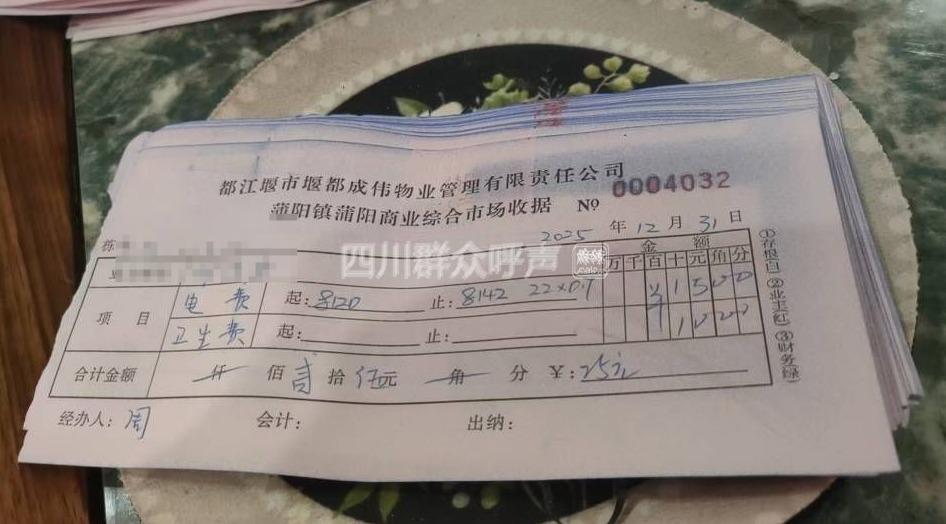 都江堰市堰都成伟物业管理有限责任公司
蒲阳镇蒲阳商业综合市场收据 № 0004032
2025年12月31日
栋
业
金额
万千百十元角分
项目
电费 起:8120 止:8142 22×0.7 ¥1500
卫生费 起: 止: ¥1000
合计金额 仟佰贰拾伍元角分 ¥:25元
经办人:周 会计: 出纳:
①存根白②业主红③财务绿
四川群众呼声